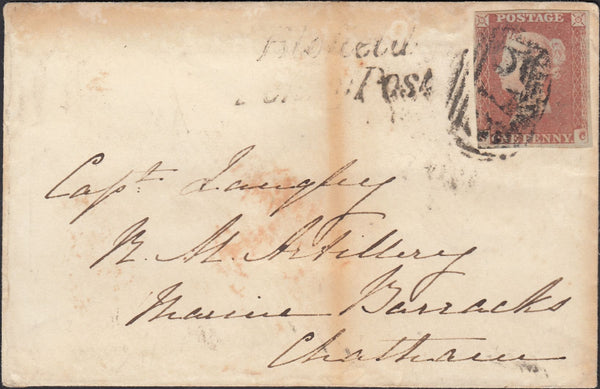 Post
POSTAGE
ONE PENNY
C
Capt. Langley
R. M. Artillery
Marine Barracks
Chatham